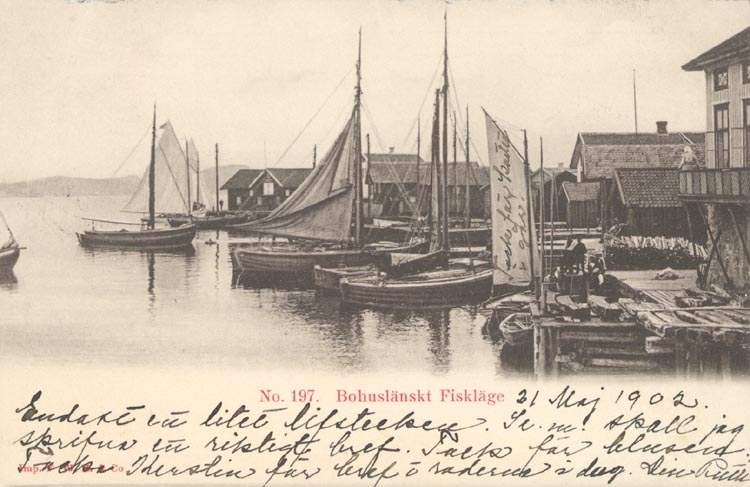 tack för senast
igår.
No. 197. Bohuslänskt Fiskläge 21 Maj 1902.
Endast ett litet lifstecken. Se. m. skall jag
skrifva en riktigt bref. Tack för blusen
Tacka Kerstin för bref o raderna i dag. Din Ruth
Imp. & Co